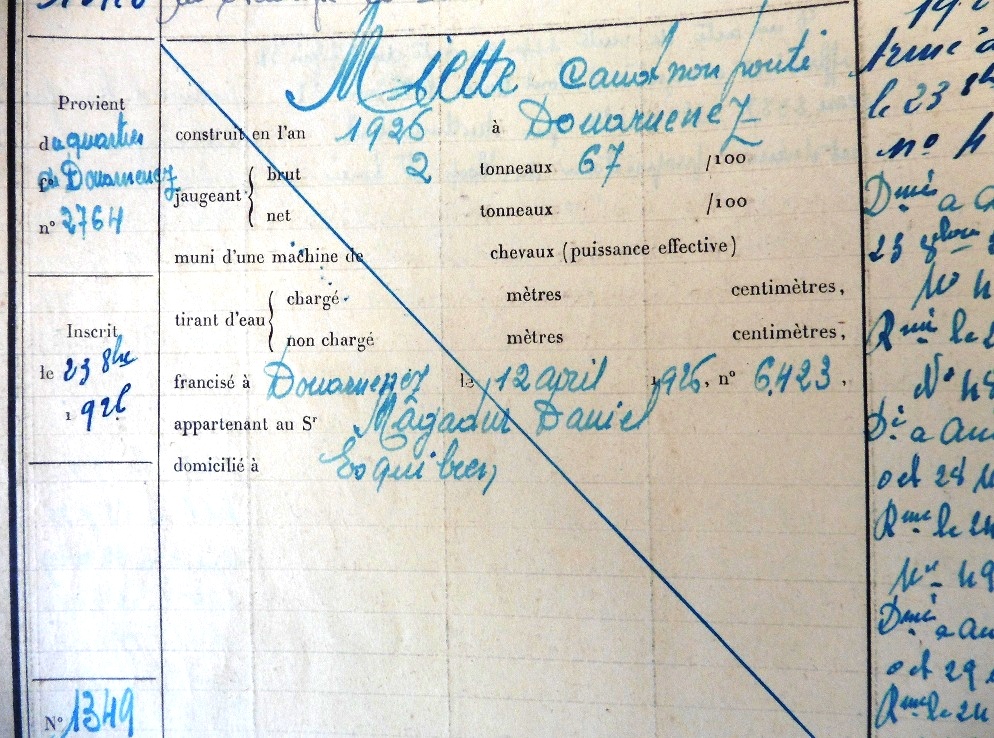 Provient
du quartier
de Douarnenez
n° 2764
Inscrit
le 23 8bre
1926
N° 1349
Miette Canot non ponté
construit en l'an 1926 à Douarnenez
jaugeant brut 2 tonneaux 67 /100
net tonneaux /100
muni d'une machine de chevaux (puissance effective)
tirant d'eau chargé mètres centimètres,
non chargé mètres centimètres,
francisé à Douarnenez le 12 april 1926, n° 6,423,
appartenant au Sr Magadur Daniel
domicilié à Esquibien,
Armé à
le 23 8b
n° 4
Dmé a
23 8bre
N° 4
Rmé le 2
N° 48
Dé a Au
oct 28
Rme le 24
N° 49
Dmé a Au
oct 29
Rme le 24